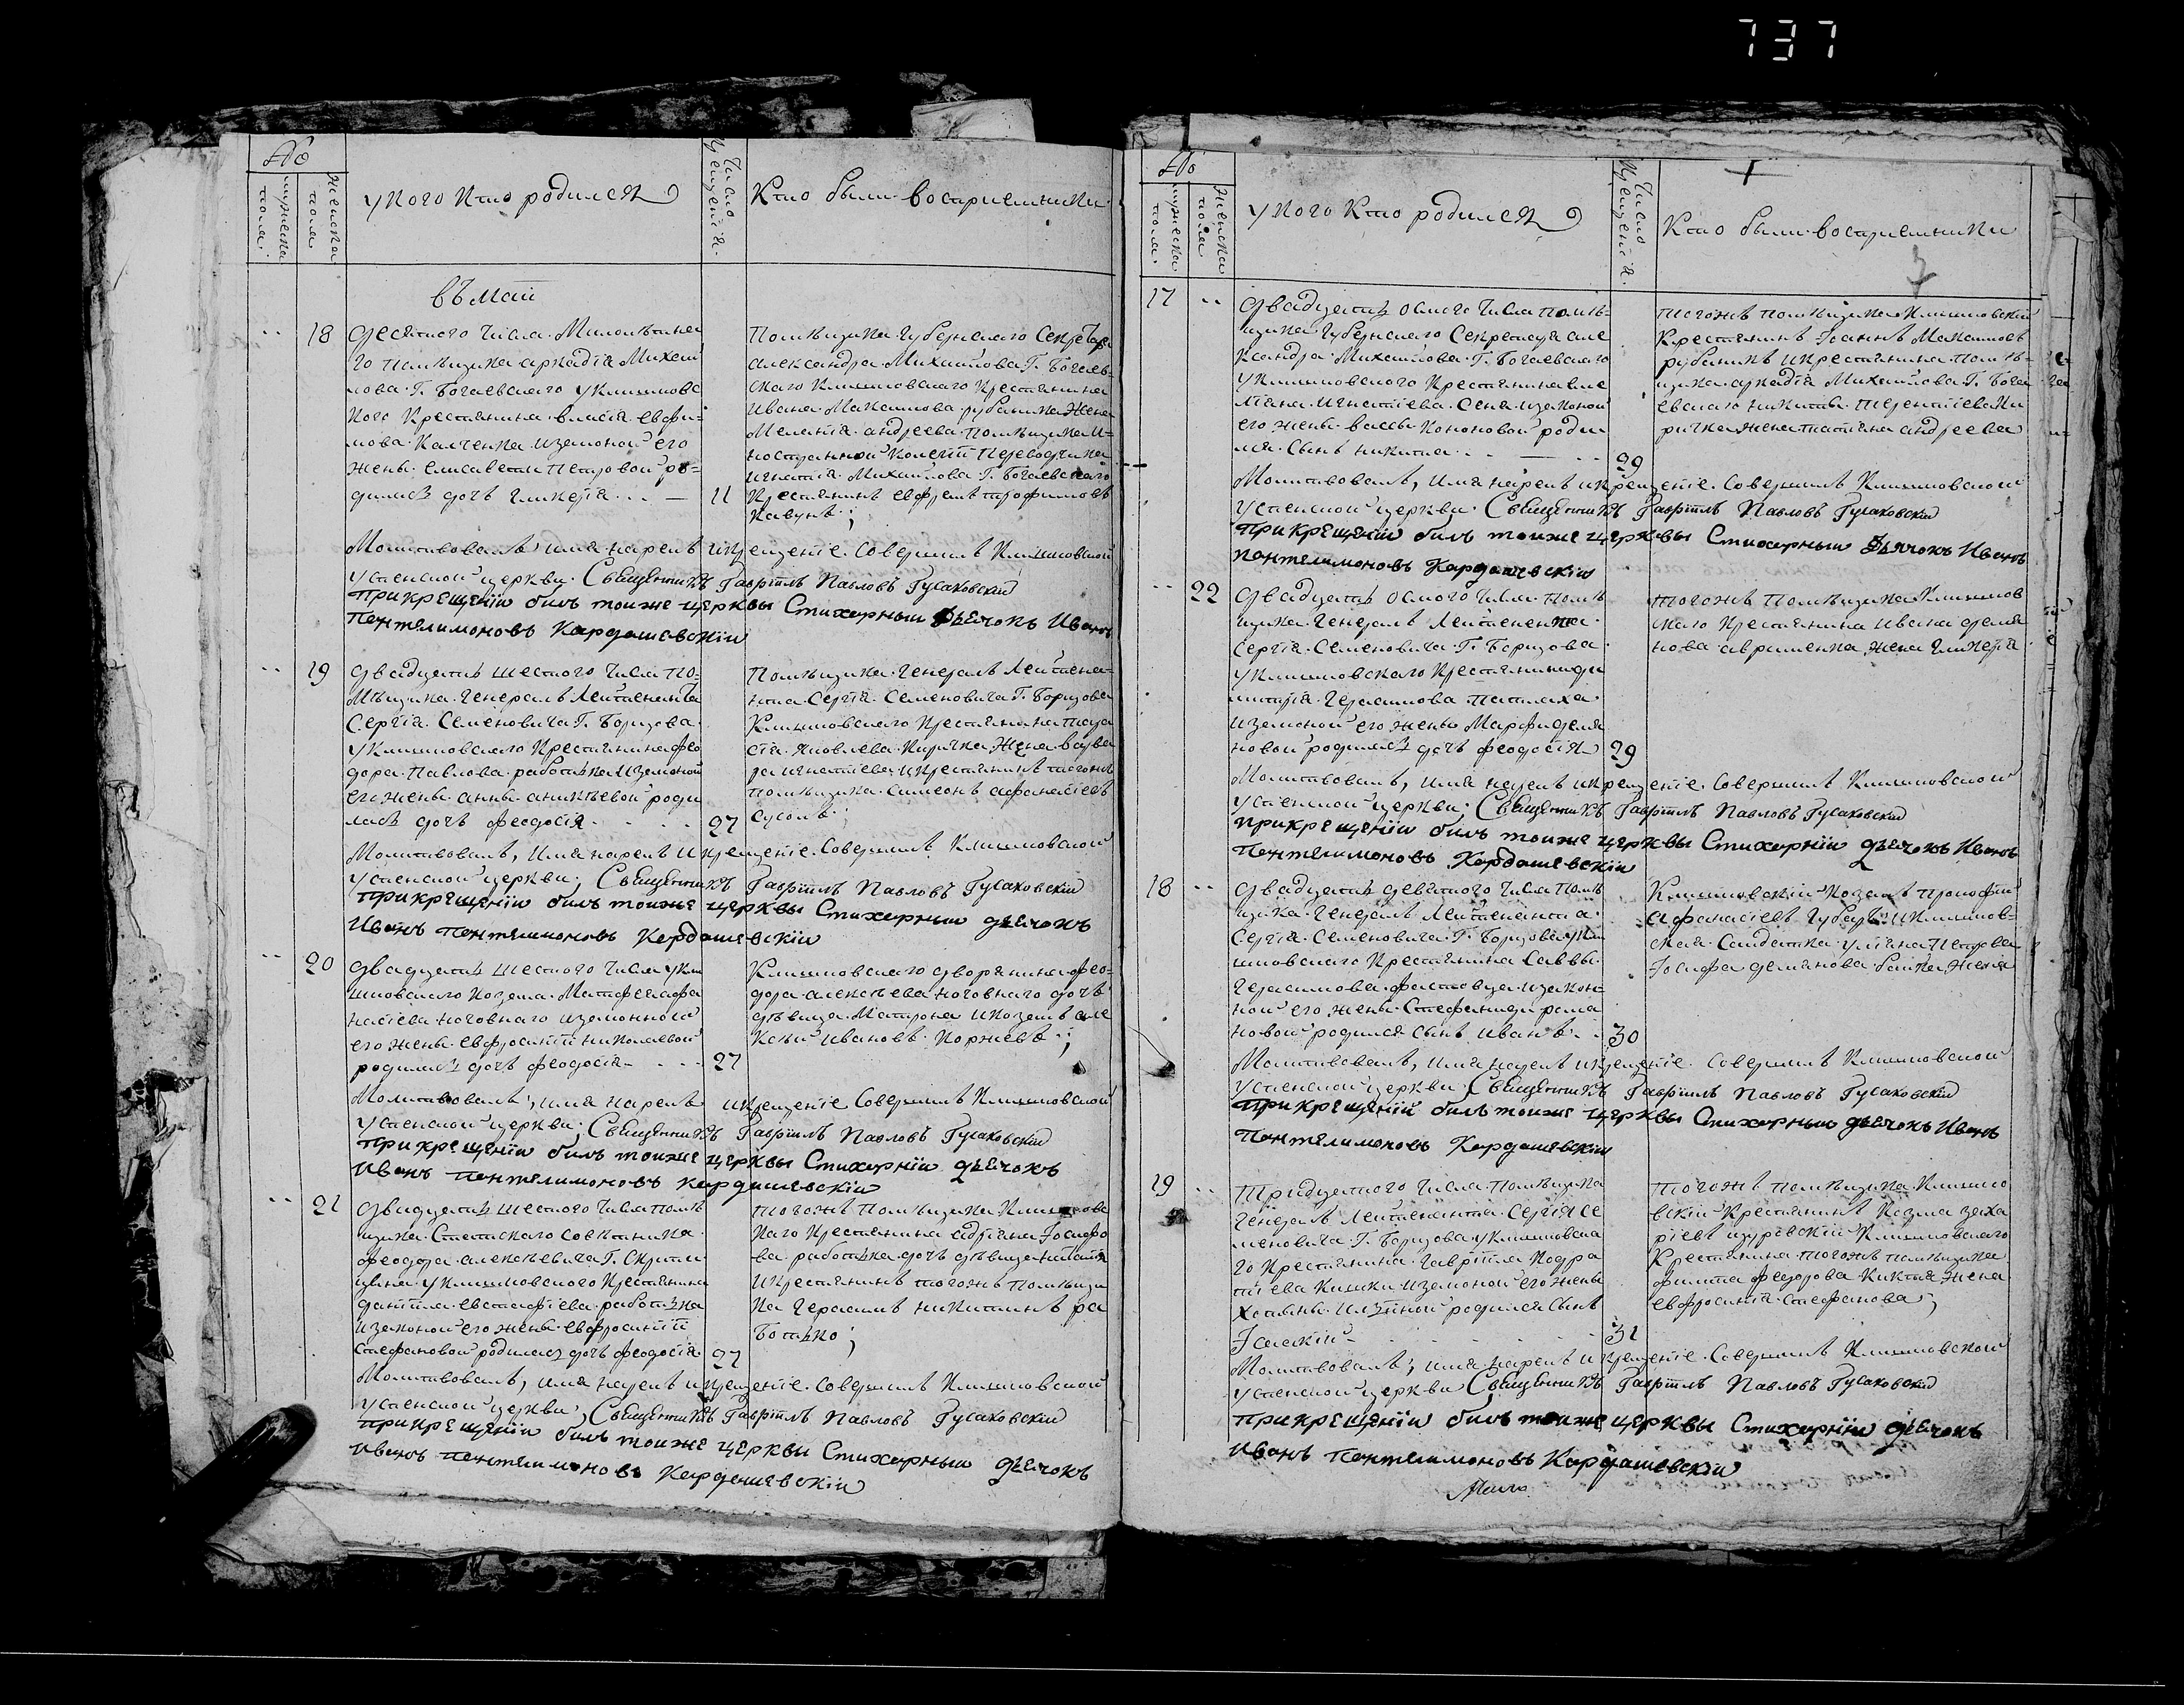 737
№
мужеска пола.
женска пола
У кого кто родился
Число крещенїя.
Кто были восприемники
въ маїи
18
Десятого числа
го помѣщика аркадїя Михаи
лова Г. Богаевскаго у климовс
кого Крестянина власїя евфи-
мова Калченка и законой его
жены елисаветы Петровой ро-
дилась дочь гликерїя
11
Помѣщика Губернскаго Секретаря
александра Михаилова Г. Богаев-
скаго климовскаго крестянина
Ивана Максимова рубаника жена
Меланїя андреева помѣщика и-
ностранной Колегїи Переводчика
игнатїя Михаилова Г. Богаевскаго
Крестянинъ евфремъ трофимовъ
кавунъ;
Молитвовалъ имя нарекъ и крещенїе совершилъ Климовской
успенской церкви Священникъ Гаврїилъ Павловъ Гусаковскїй
При крещенїи былъ тоиже церквы Стихарныи дьячокъ Иванъ
Пантелимоновъ Кардашевскїи
19
Двадцять шестого числа по-
мѣщика генералъ Лейтенанта
Сергїя Семеновича Г. Борщова
у климовскаго крестянина фео
дора Павлова работька и законой
его жены анны аникѣевой роди
лась дочь феодосїя
27
Помѣщика генералъ Лейтена-
нта Сергїя Семеновича Г. Борщова
Климовскаго крестянина тара
сїя яковлева Киричка жена варва
ра игнатїева и крестянинъ тогожъ
помѣщика симеонъ афанасїевъ
Сусолъ;
Молитвовалъ, имя нарекъ и крещенїе совершилъ Климовской
успенской церкви; Священникъ Гаврїилъ Павловъ Гусаковскїй
При крещенїи былъ тоиже церквы Стихарныи дьячокъ
Иванъ Пантелимоновъ Кардашевскїи
20
Двадцять шестого числа у кли
мовскаго козака Матфея афа
насїева ноговнаго и законной
его жены евфросинїи николаевой
родилась дочь феодосїя
27
Климовскаго дворянина фео-
дора алексѣева ноговнаго дочь
дѣвица Матрона и козакъ але
ксѣй Ивановъ Коржевъ;
Молитвовалъ, имя нарекъ и крещенїе совершилъ Климовской
успенской церкви; Священникъ Гаврїилъ Павловъ Гусаковскїй
При крещенїи былъ тоиже церквы Стихарнїи дьячокъ
Иванъ Пантелимоновъ Кардашевскїи
21
Двадцять шестого числа помѣ
щика Статского Совѣтника
феодора алексѣевича Г. Скрипи
цына у климовского крестянина
данїила евстафїева работька
и законой его жены евфросинїи
Стефановой родилась дочь феодосїя
27
тогожъ помѣщика Климовс
каго крестянина адрїана Iосифо
ва работька дочь дѣвица
и крестянинъ тогожъ помѣщи
ка герасимъ никитинъ ра
ботько;
Молитвовалъ, имя нарекъ и крещенїе совершилъ Климовской
успенской церкви, Священникъ Гаврїилъ Павловъ Гусаковскїй
При крещенїи былъ тоиже церквы Стихарныи дьячокъ
Иванъ Пантелимоновъ Кардашевскїи
№
мужеска пола
женска пола
У кого кто родился
Число крещенїя.
Кто были восприемники
17
Двадцять осмого числа помѣ-
щика Губернскаго Секретаря але
ксандра Михаилова Г. Богаевскаго
у климовского крестянина еме
лїана игнатїева Сена и законой
его жены вассы Кононовой роди
лся сынъ никита
29
тогожъ помѣщика климовскїй
Крестянинъ Iоаннъ Максимовъ
рубаникъ и крестянина помѣ-
щика аркадїя Михаилова Г. Бога
евскаго никиты терентїева Ки
ричка жена татїяна андреева
Молитвовалъ, имя нарекъ и крещенїе совершилъ Климовской
успенской церкви Священникъ Гаврїилъ Павловъ Гусаковскїй
При крещенїи былъ тоиже церквы Стихарныи Дьячокъ Иванъ
Пантелимоновъ Кардашевскїи
22
Двадцять осмого числа помѣ
щика генералъ Лейтенанта
Сергїя Семеновича Г. Борщова
у климовскаго крестянина ди
митрїя герасимова паталаха
и законой его жены Марфи демя
новой родилась дочь феодосїя
29
тогожъ помѣщика климов
скаго крестянина Ивана демя
нова авраменка жена гликерїя
Молитвовалъ, имя нарекъ и крещенїе совершилъ Климовской
успенской церкви; Священникъ Гаврїилъ Павловъ Гусаковскїй
При крещенїи былъ тоиже церквы Стихарнїи дьячокъ Иванъ
Пантелимоновъ Кардашевскїи
18
Двадцять девятого числа помѣ
щика генералъ Лейтенанта
Сергїя Семеновича Г. Борщова у кли
мовскаго крестянина Саввы
герасимова фастовца и закон-
ной его жены Стефаниди рома
новой родился сынъ Иванъ
30
Климовскїй козакъ прокофїй
афанасїевъ губарь и климов-
ская Солдатка улїяна Петрова
Iосифа демянова башка жена
Молитвовалъ, имя нарекъ и крещенїе совершилъ Климовской
успенской церкви; Священникъ Гаврїилъ Павловъ Гусаковскїй
При крещенїи былъ тоиже церквы Стихарныи дьячокъ Иванъ
Пантелимоновъ Кардашевскїи
19
Тридцятого числа помѣщика
генералъ Лейтенанта Сергїя Се
меновича Г. Борщова у климовска
го крестянина гаврїила Кодра
тїева Кишки и законой его жены
родился сынъ
Iсаакїй
31
тогожъ помѣщика климо
вскїй крестянинъ Козма заха
рїевъ щуревскїй и климовскаго
Крестянина тогожъ помѣщика
филипа феодорова Киктя жена
евфросинїя Стефанова;
Молитвовалъ, имя нарекъ и крещенїе совершилъ Климовской
успенской церкви Священникъ Гаврїилъ Павловъ Гусаковскїй
При крещенїи былъ тоиже церквы Стихарнїи дьячокъ
Иванъ Пантелимоновъ Кардашевскїи